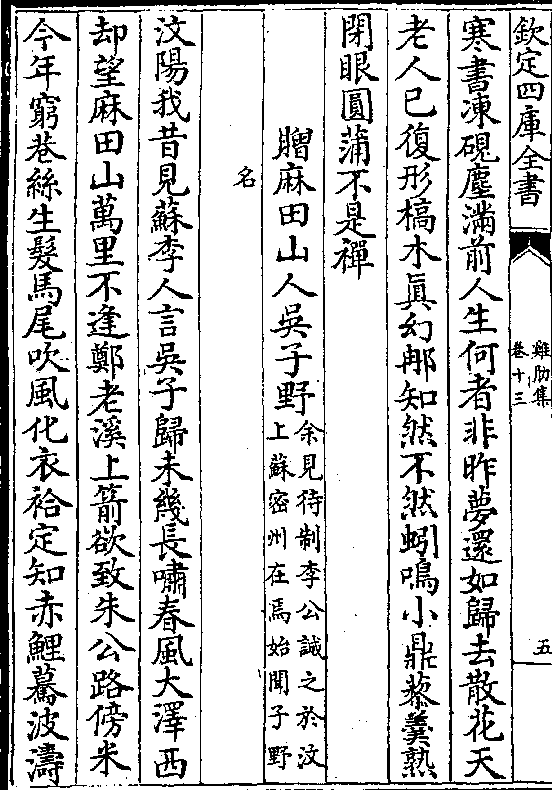 欽定四庫全書
雞肋集
卷十三
五
寒書凍硯塵滿前人生何者非昨夢還如歸去散花天
老人已復形槁木真幻那知然不然蚓鳴小鼎藜羮熟
閉眼圓蒲不是禪
贈麻田山人吳子野余見待制李公諴之於汶
上蘇密州在焉始聞子野
名
汶陽我昔見蘇李人言吳子歸未幾長嘯春風大澤西
却望麻田山萬里不逢鄭老溪上箭欲致朱公路傍米
今年窮巷絲生髮馬尾吹風化衣袷定知赤鯉驀波濤